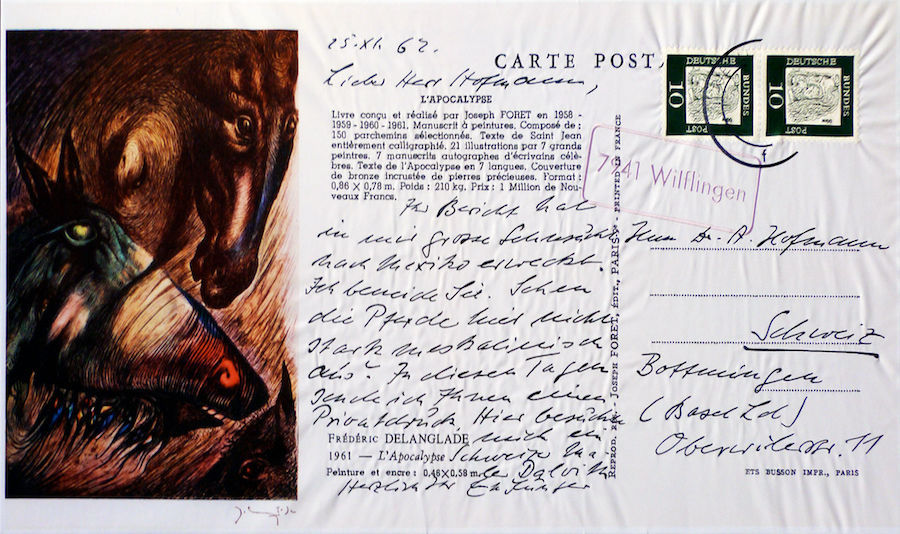 25.XI.62.
CARTE POST
Lieber Herr Hofmann,
L'APOCALYPSE
Livre conçu et réalisé par Joseph FORET en 1958 -
1959 - 1960 - 1961. Manuscrit à peintures. Composé de :
150 parchemins sélectionnés. Texte de Saint Jean
entièrement calligraphié. 21 illustrations par 7 grands
peintres. 7 manuscrits autographes d'écrivains célè-
bres. Texte de l'Apocalypse en 7 langues. Couverture
de bronze incrustée de pierres précieuses. Format :
0,86 X 0,78 m. Poids : 210 kg. Prix : 1 Million de Nou-
veaux Francs.
Ihr Bericht hat
in mir grosse Sehnsucht
nach Mexiko erweckt.
Ich beneide Sie. Sehen
die Pferde hier nicht
stark meskalinisch
aus? In diesen Tagen
sende ich Ihnen einen
Privatdruck. Hier besuchte
mich ein
Schweizer Ma-
ler
Herzlich Ihr Ernst Jünger
FRÉDÉRIC DELANGLADE
1961 — L'Apocalypse
Peinture et encre : 0,48X0,58 m.
REPROD. - JOSEPH FORET, ÉDIT., PARIS - PRINTED IN FRANCE
DEUTSCHE
BUNDES
POST
10
DEUTSCHE
BUNDES
POST
10
7941 Wilflingen
Herrn Dr. A. Hofmann
Schweiz
Bottmingen
(Basel Ld)
Oberwilerstr. 11
ETS BUSSON IMPR., PARIS